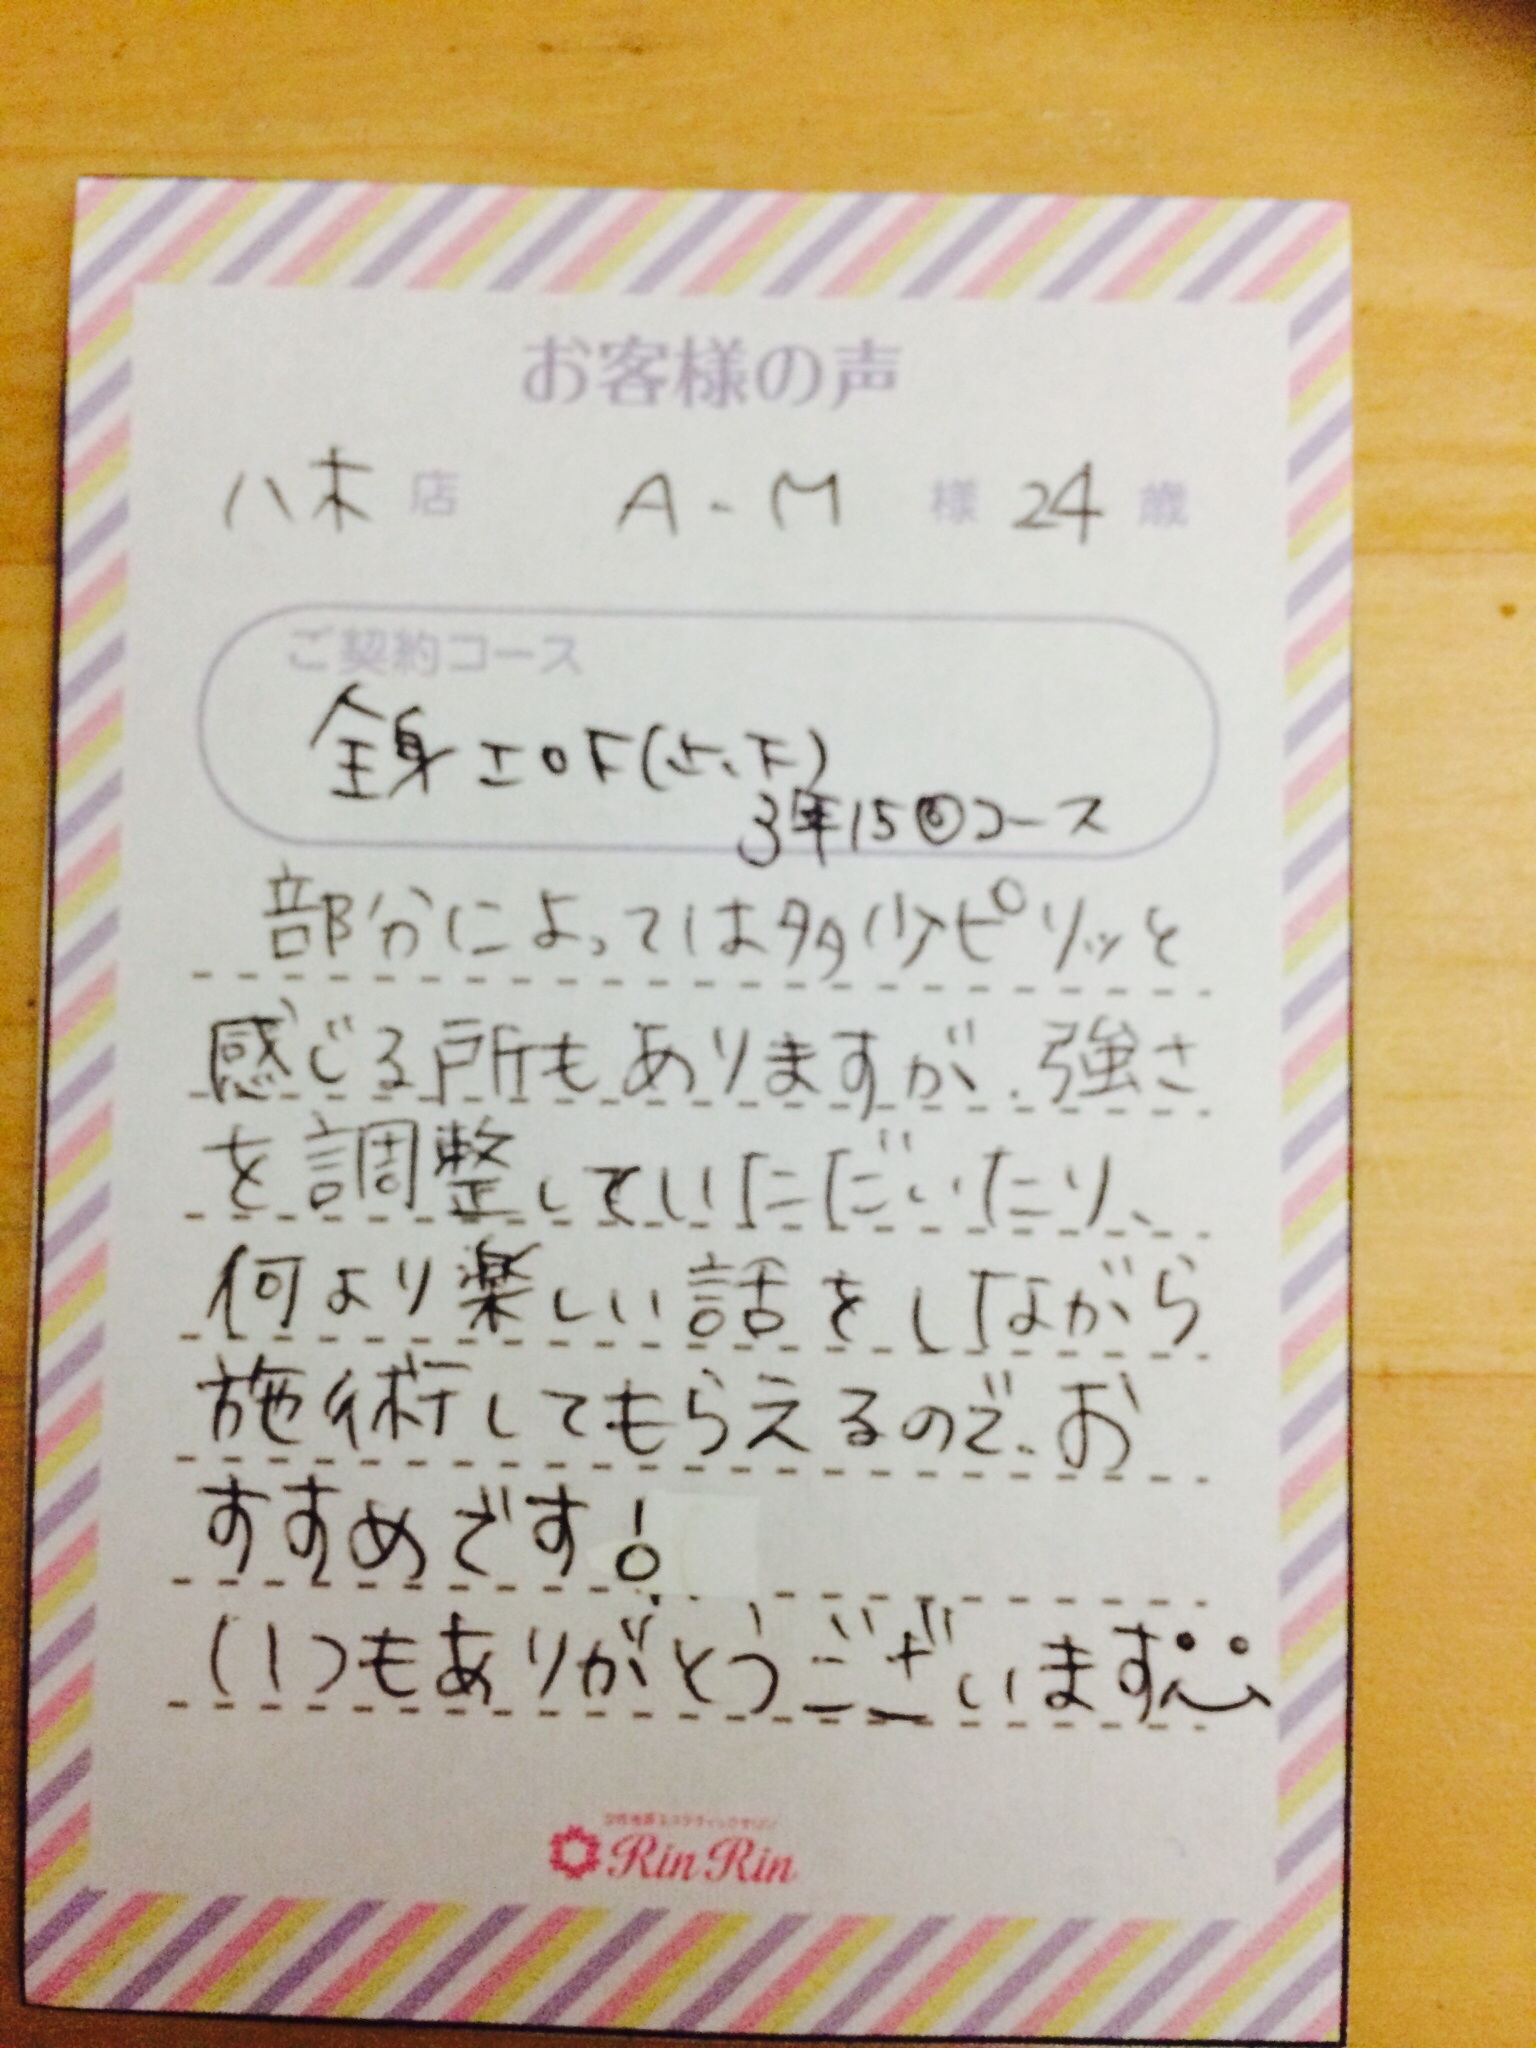 お客様の声
八木店 A-M 様 24歳
ご契約コース
全身エロF(上、下)
3年15回コース
部分によっては多少ピリッと
感じる所もありますが、強さ
を調整していただいたり、
何より楽しい話をしながら
施術してもらえるので、お
すすめです!
いつもありがとうございます
Rin Rin